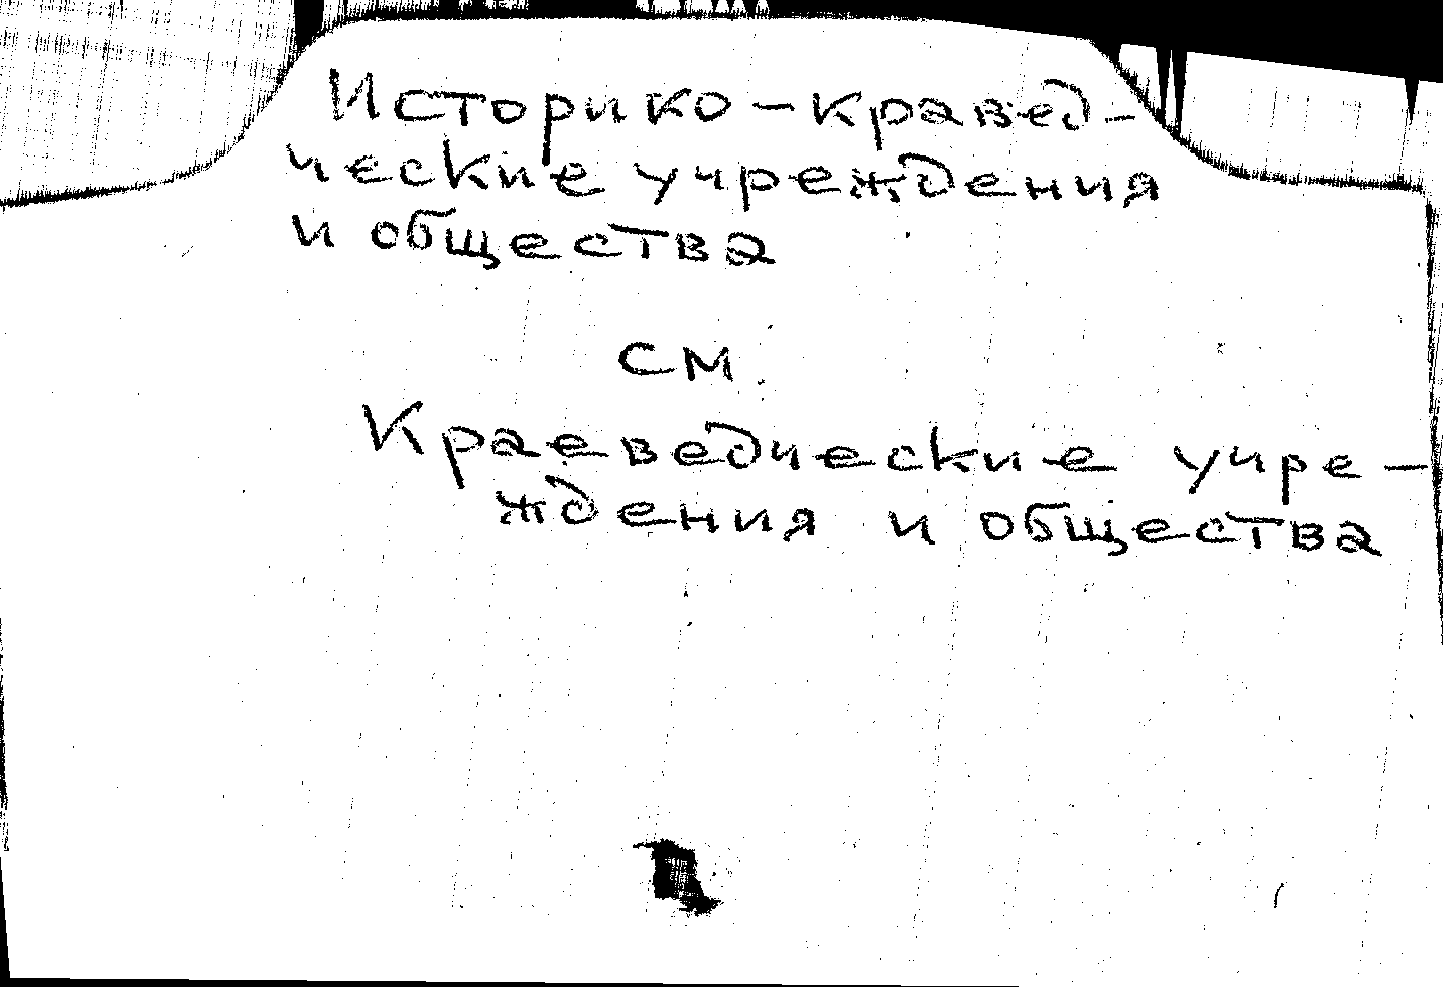 Историко-кравед-
ческие учреждения
и общества
см.
Краеведческие учре-
ждения и общества